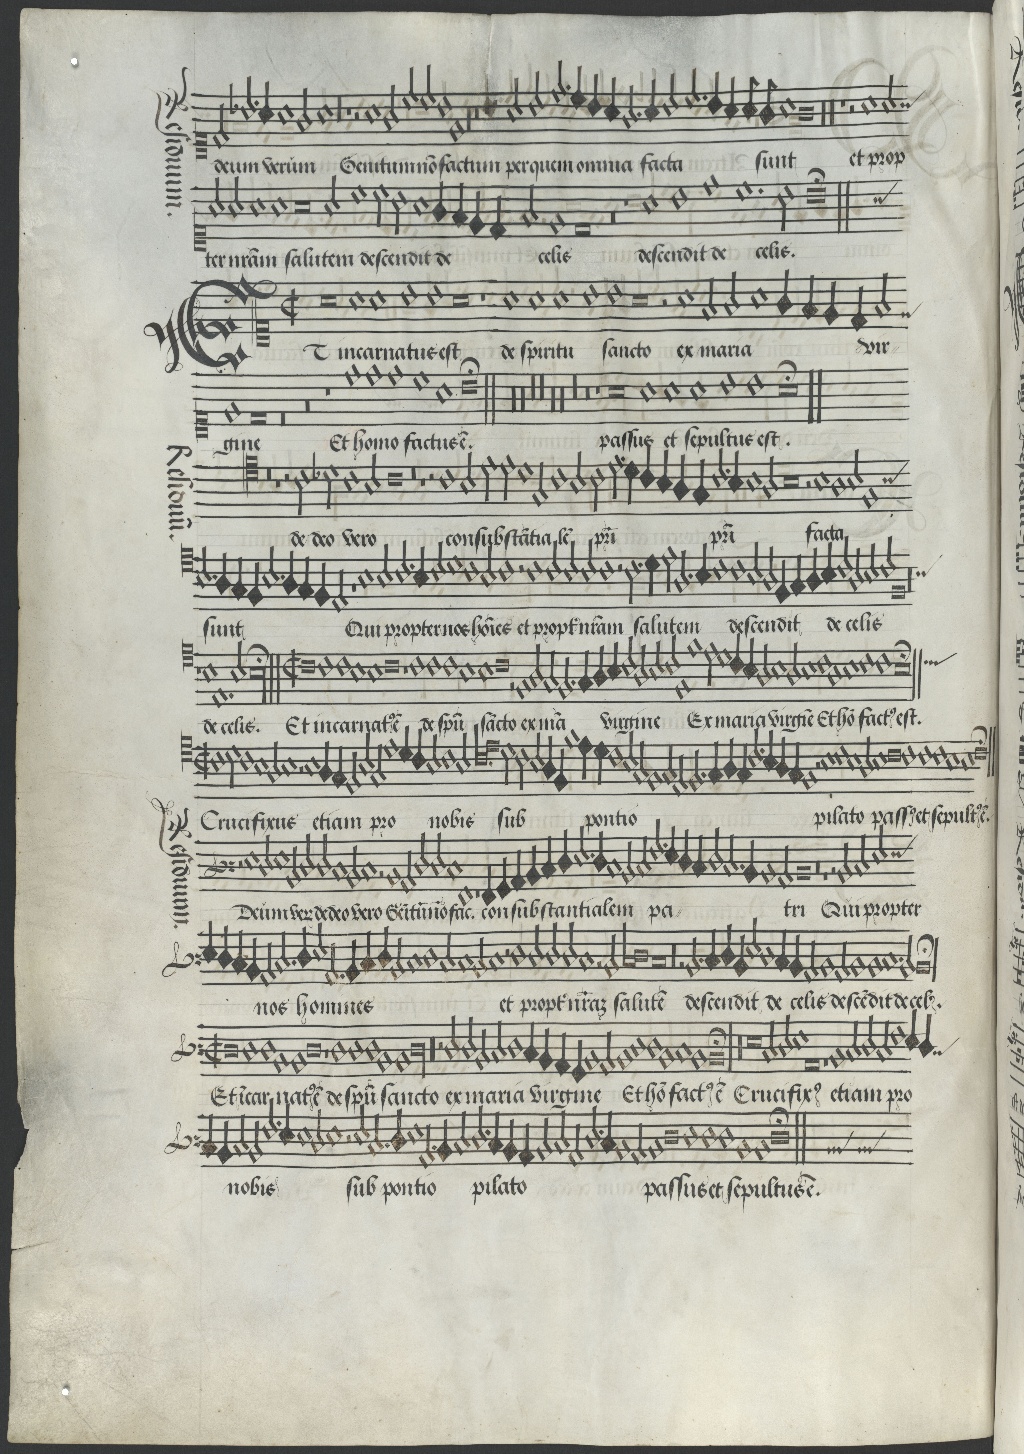 Residuum.
deum verum Genitum nō factum per quem omnia facta sunt et prop
ter nr̄am salutem descendit de celis descendit de celis.
ET incarnatus est de spiritu sancto ex maria vir
gine Et homo factus ē. passus et sepultus est.
Residuū.
de deo vero consubstātia lē pr̄i pr̄i facta
sunt Qui propter nos hōies et propt̄ nr̄am salutem descendit de celis
de celis. Et incarnatꝰ ē de spū sācto ex mā virgine Ex maria virgīe Et hō factꝰ est.
Crucifixus etiam pro nobis sub pontio pilato passꝰ et sepultꝰ ē.
Residuum.
Deum ver de deo vero Geītū nō fac. consubstantialem pa tri Qui propter
nos homines et propt̄ salutē descendit de celis descēdit de cel
Et īcarnatꝰ ē de spū sancto ex maria virgine Et hō factꝰ ē Crucifixꝰ etiam pro
nobis sub pontio pilato passus et sepultus ē.